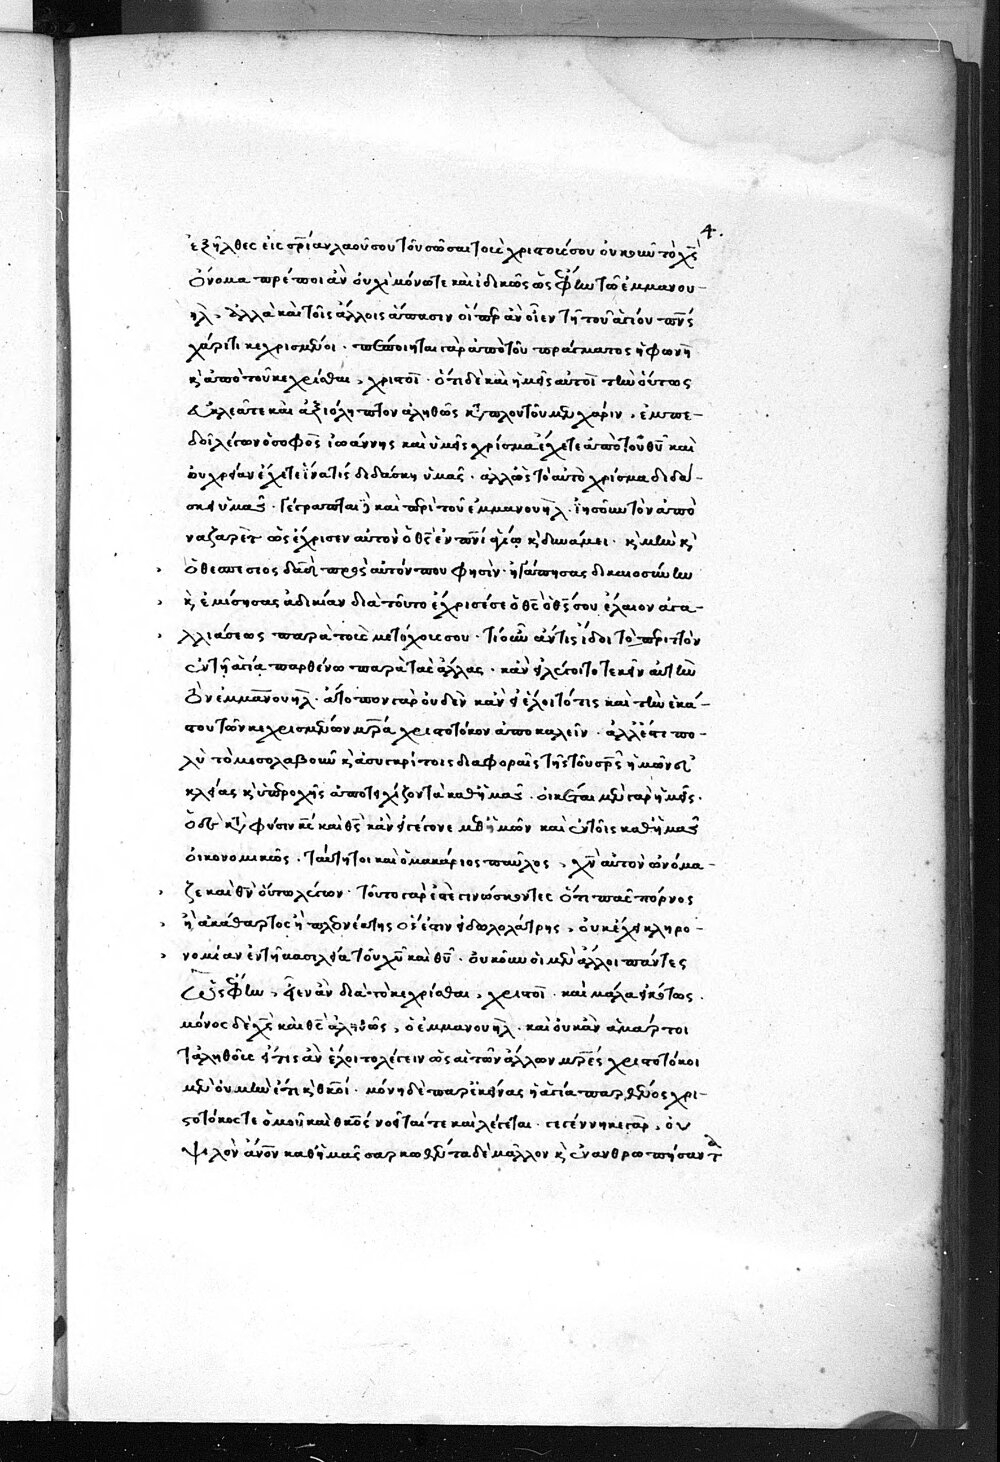 ἐξῆλθες εἰς σρίαν λαοῦ σου τοῦ σῶσαι τοὺς χριστούς σου οὐκοῦν τὸ χς
ὄνομα πρέποι ἂν οὐχὶ μόνω τε καὶ ἰδικῶς ὡς ἔφην τῶ ἐμμανου-
ήλ, ἀλλὰ καὶ τοῖς ἄλλοις ἅπασιν οἵπερ ἂν εἶεν τῆ τοῦ ἁγίου πνς
χάριτι κεχρισμένοι · πεποίηται γὰρ ἀπὸ τοῦ πράγματος ἡ φωνὴ
κ ἀπὸ τοῦ κεχρίσθαι, χριστοί · ὅτι δὲ καὶ ἡμεῖς αὐτοὶ τὴν οὕτως
εὐκλεᾶ τε καὶ ἀξιόληπτον ἀληθῶς καταπλουτοῦμεν χάριν, ἐμπε-
δοῖ λέγων ὁ σοφὸς ἰωάννης καὶ ὑμεῖς χρίσμα ἔχετε ἀπὸ τοῦ θυ καὶ
οὐ χρείαν ἔχετε ἵνα τίς διδάσκη ὑμᾶς · ἀλλ' ὡς τὸ αὐτὸ χρίσμα διδά-
σκει ὑμᾶς · γέγραπται δὲ καὶ περὶ τοῦ ἐμμανουήλ · ἰησοῦν τὸν ἀπὸ
ναζαρὲτ ὡς ἔχρισεν αὐτὸν ὁ θς ἐν πνι ἁγίω κ δυνάμει · κ μὴν κ
ὁ θεσπέσιος δαδ πρὸς αὐτόν που φησίν · ἠγάπησας δικαιοσύνην
κ ἐμίσησας ἀδικίαν διὰ τοῦτο ἔχρισέ σε ὁ θς ὁ θς σου ἔλαιον ἀγα-
λλιάσεως παρὰ τοὺς μετόχους σου · τί οὖν ἄν τις ἴδοι τὸ περιττὸν
ἐν τῆ ἁγία παρθένω παρὰ τὰς ἄλλας · κἂν εἰ λέγοιτο τεκεῖν αὐτὴν
τὸν ἐμμανουήλ · ἄτοπον γὰρ οὐδὲν κἂν εἰ ἕλοιτό τις καὶ τὴν ἑκά-
στου τῶν κεχρισμένων μρα χριστοτόκον ἀποκαλεῖν · ἀλλ' ἔστι πο-
λὺ τὸ μεσολαβοῦν κ ἀσυγκρίτοις διαφοραῖς τῆς τοῦ σρς ἡμῶν εὐ
κλείας κ ὑπεροχῆς ἀποτειχίζον τὰ καθ' ἡμᾶς · οἰκέται μὲν γὰρ ἡμεῖς ·
ὁ δὲ κατὰ φύσιν κς καὶ θς κἂν εἰ γέγονε μεθ' ἡμῶν καὶ ἐν τοῖς καθ' ἡμᾶς
οἰκονομικῶς · ταύτητοι καὶ ὁ μακάριος παῦλος, χν αὐτὸν ὠνόμα-
ζε καὶ θν οὕτω λέγων · τοῦτο γὰρ ἔστε γινώσκοντες ὅτι πᾶς πόρνος
ἢ ἀκάθαρτος ἢ πλεονέκτης ὅ ἐστιν εἰδωλολάτρης, οὐκ ἔχει κληρο-
νομίαν ἐν τῆ βασιλεία τοῦ χυ καὶ θυ · οὐκοῦν οἱ μὲν ἄλλοι πάντες
ὡς ἔφην, εἶεν ἂν διὰ τὸ κεχρίσθαι, χριστοί · καὶ μάλα εἰκότως ·
μόνος δὲ χς καὶ θς ἀληθῶς, ὁ ἐμμανουήλ · καὶ οὐκ ἂν ἁμάρτοι
τἀληθοῦς εἴ τις ἂν ἕλοιτο λέγειν ὡς αἱ τῶν ἄλλων μρες χριστοτόκοι
μὲν οὐ μὴν ἔτι κ θκοι · μόνη δὲ παρ' ἐκείνας ἡ ἁγία παρθένος χρι-
στοτόκος τε ὁμοῦ καὶ θκος νοεῖταί τε καὶ λέγεται · γεγέννηκε γὰρ, οὐ
ψιλὸν ἄνον καθ' ἡμᾶς σαρκωθέντα δὲ μᾶλλον κ ἐνανθρωπήσαντα